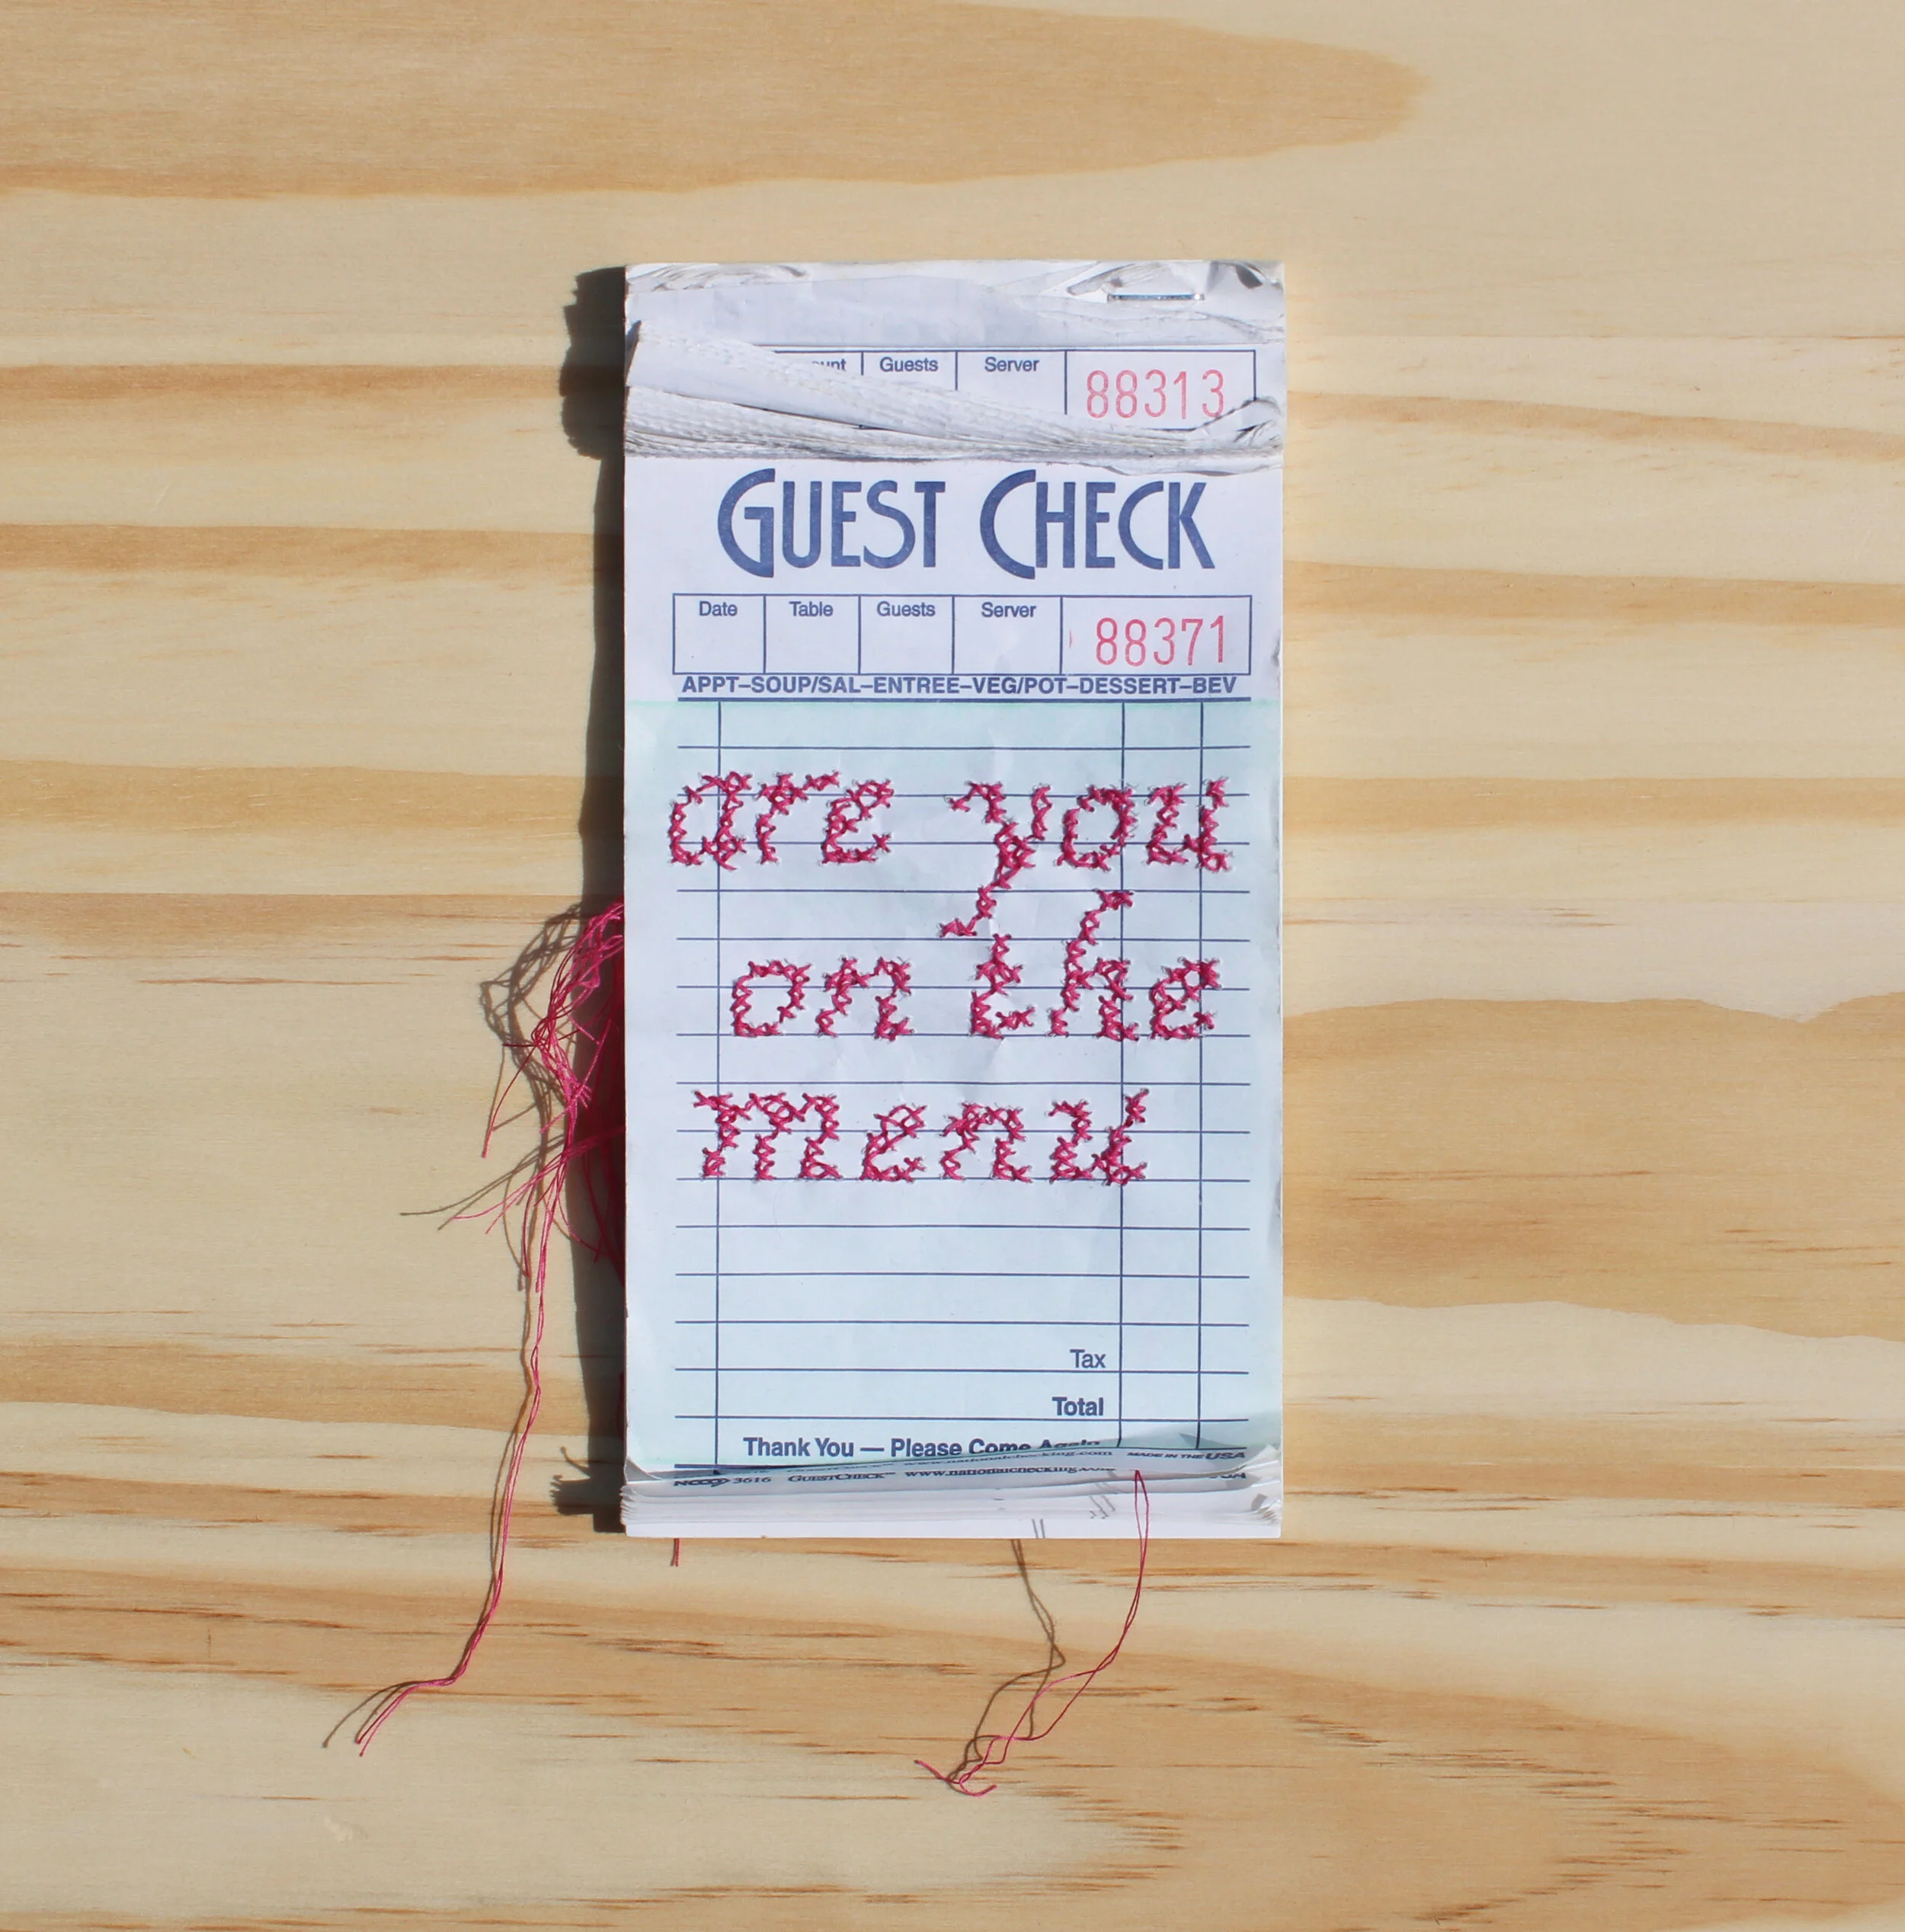 Guests Server 88313
GUEST CHECK
Date Table Guests Server 88371
APPT–SOUP/SAL–ENTREE–VEG/POT–DESSERT–BEV
are you
on the
menu
Tax
Total
Thank You — Please Come Again
www.nationalchecking.com MADE IN THE USA
3616 GUESTCHECK™ www.nationalchecking.com